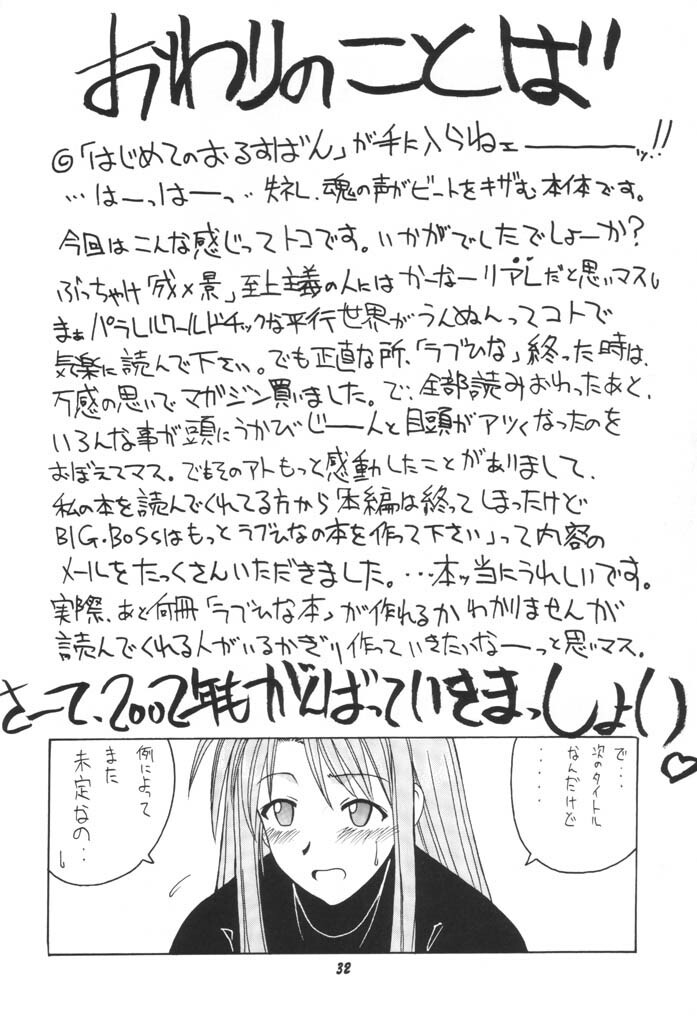 おわりのことば
◎「はじめてのおるすばん」が手に入らねェ――――ッ!!
…はーっはーっ‥失ネし、魂の声がビートをキザむ本体です。
今回はこんな感じってトコです。いかがでしたでしょーか?
ぶっちゃけ「成×景」至上主義の人にはかーなーリアLだと思いマスし
まぁパラレルワールドチックな平行世界がうんぬんってコトで
気楽に読んで下さい。でも正直な所、「ラブひな」終った時は、
万感の思いでマガジン買いました。で、全部読みおわったあと、
いろんな事が頭にうかびじ――人と目頭がアツくなったのを
おぼえてマス。でもそのアトもっと感動したことがありまして、
私の本を読んでくれてる方から「本編は終ってしまったけど
BIG・BOSSはもっとラブひなの本を作って下さい」って内容の
メールをたっくさんいただきました。…本ッ当にうれしいです。
実際、あと何冊「ラブひな本」が作れるかわかりませんが
読んでくれる人がいるかぎり作っていきたいなーっと思いマス。
さーて、2002年もがんばっていきまっしょい♡
で‥‥
次のタイトル
なんだけど
‥‥‥
例によって
また
未定なの‥
32